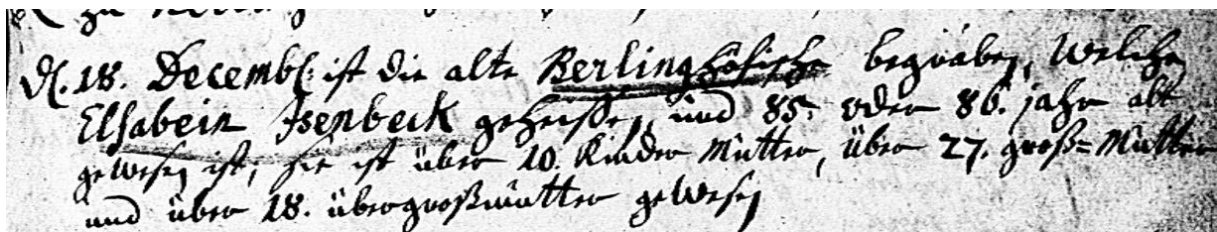 zu
D. 18. Decembr: ist die alte Berlinghöfische begraben, welche
Elsabein Isenbeck geheißen, und 85. oder 86. jahr alt
gewesen ist, sie ist über 10. Kinder Mutter, über 27. groß=Mutter
und über 18. übergroßmutter gewesen